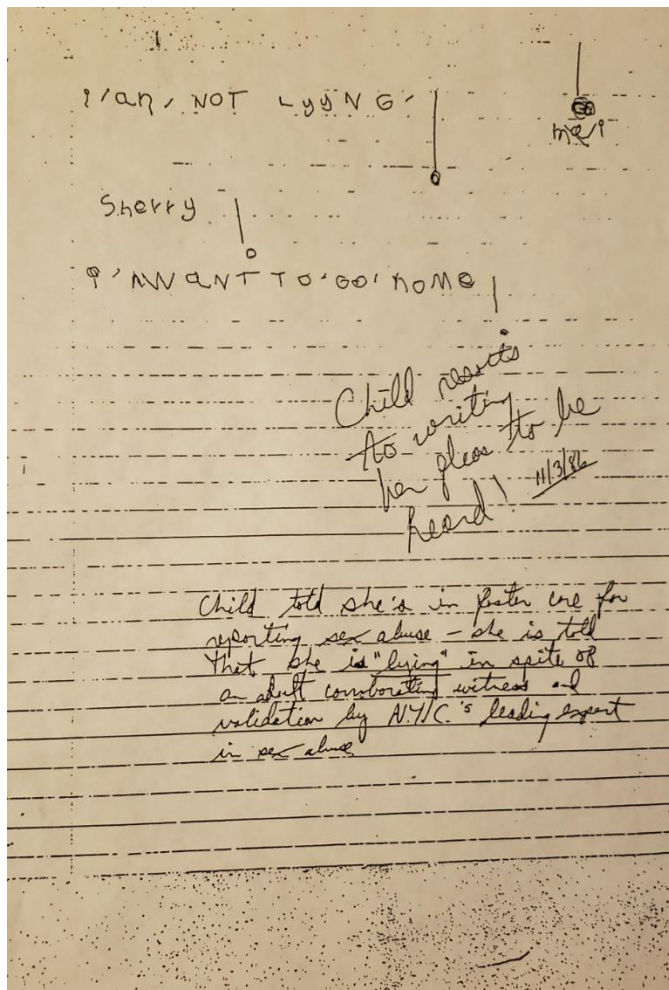 I'am, NOT LyyNG,
meri
Sherry
I'AWWANT TO'GO' HOME
Child resorts
to writing
her pleas to be
heard! 11/3/86
Child told she's in foster care for
reporting sex abuse – she is told
that she is "lying" in spite of
an adult corroborating witness and
validation by N.Y.C.'s leading expert
in sex abuse